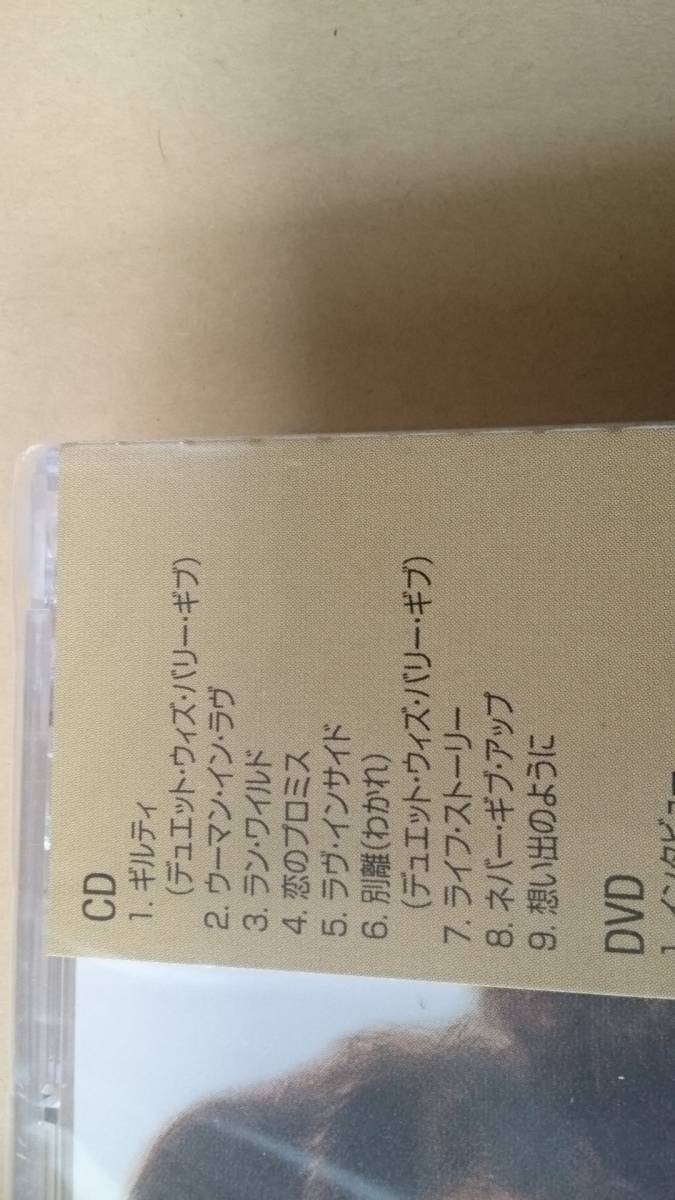 CD
1. ギルティ
(デュエット・ウィズ・バリー・ギブ)
2. ウーマン・イン・ラヴ
3. ラン・ワイルド
4. 恋のプロミス
5. ラヴ・インサイド
6. 別離(わかれ)
(デュエット・ウィズ・バリー・ギブ)
7. ライフ・ストーリー
8. ネバー・ギブ・アップ
9. 想い出のように
DVD
1. インタビュー